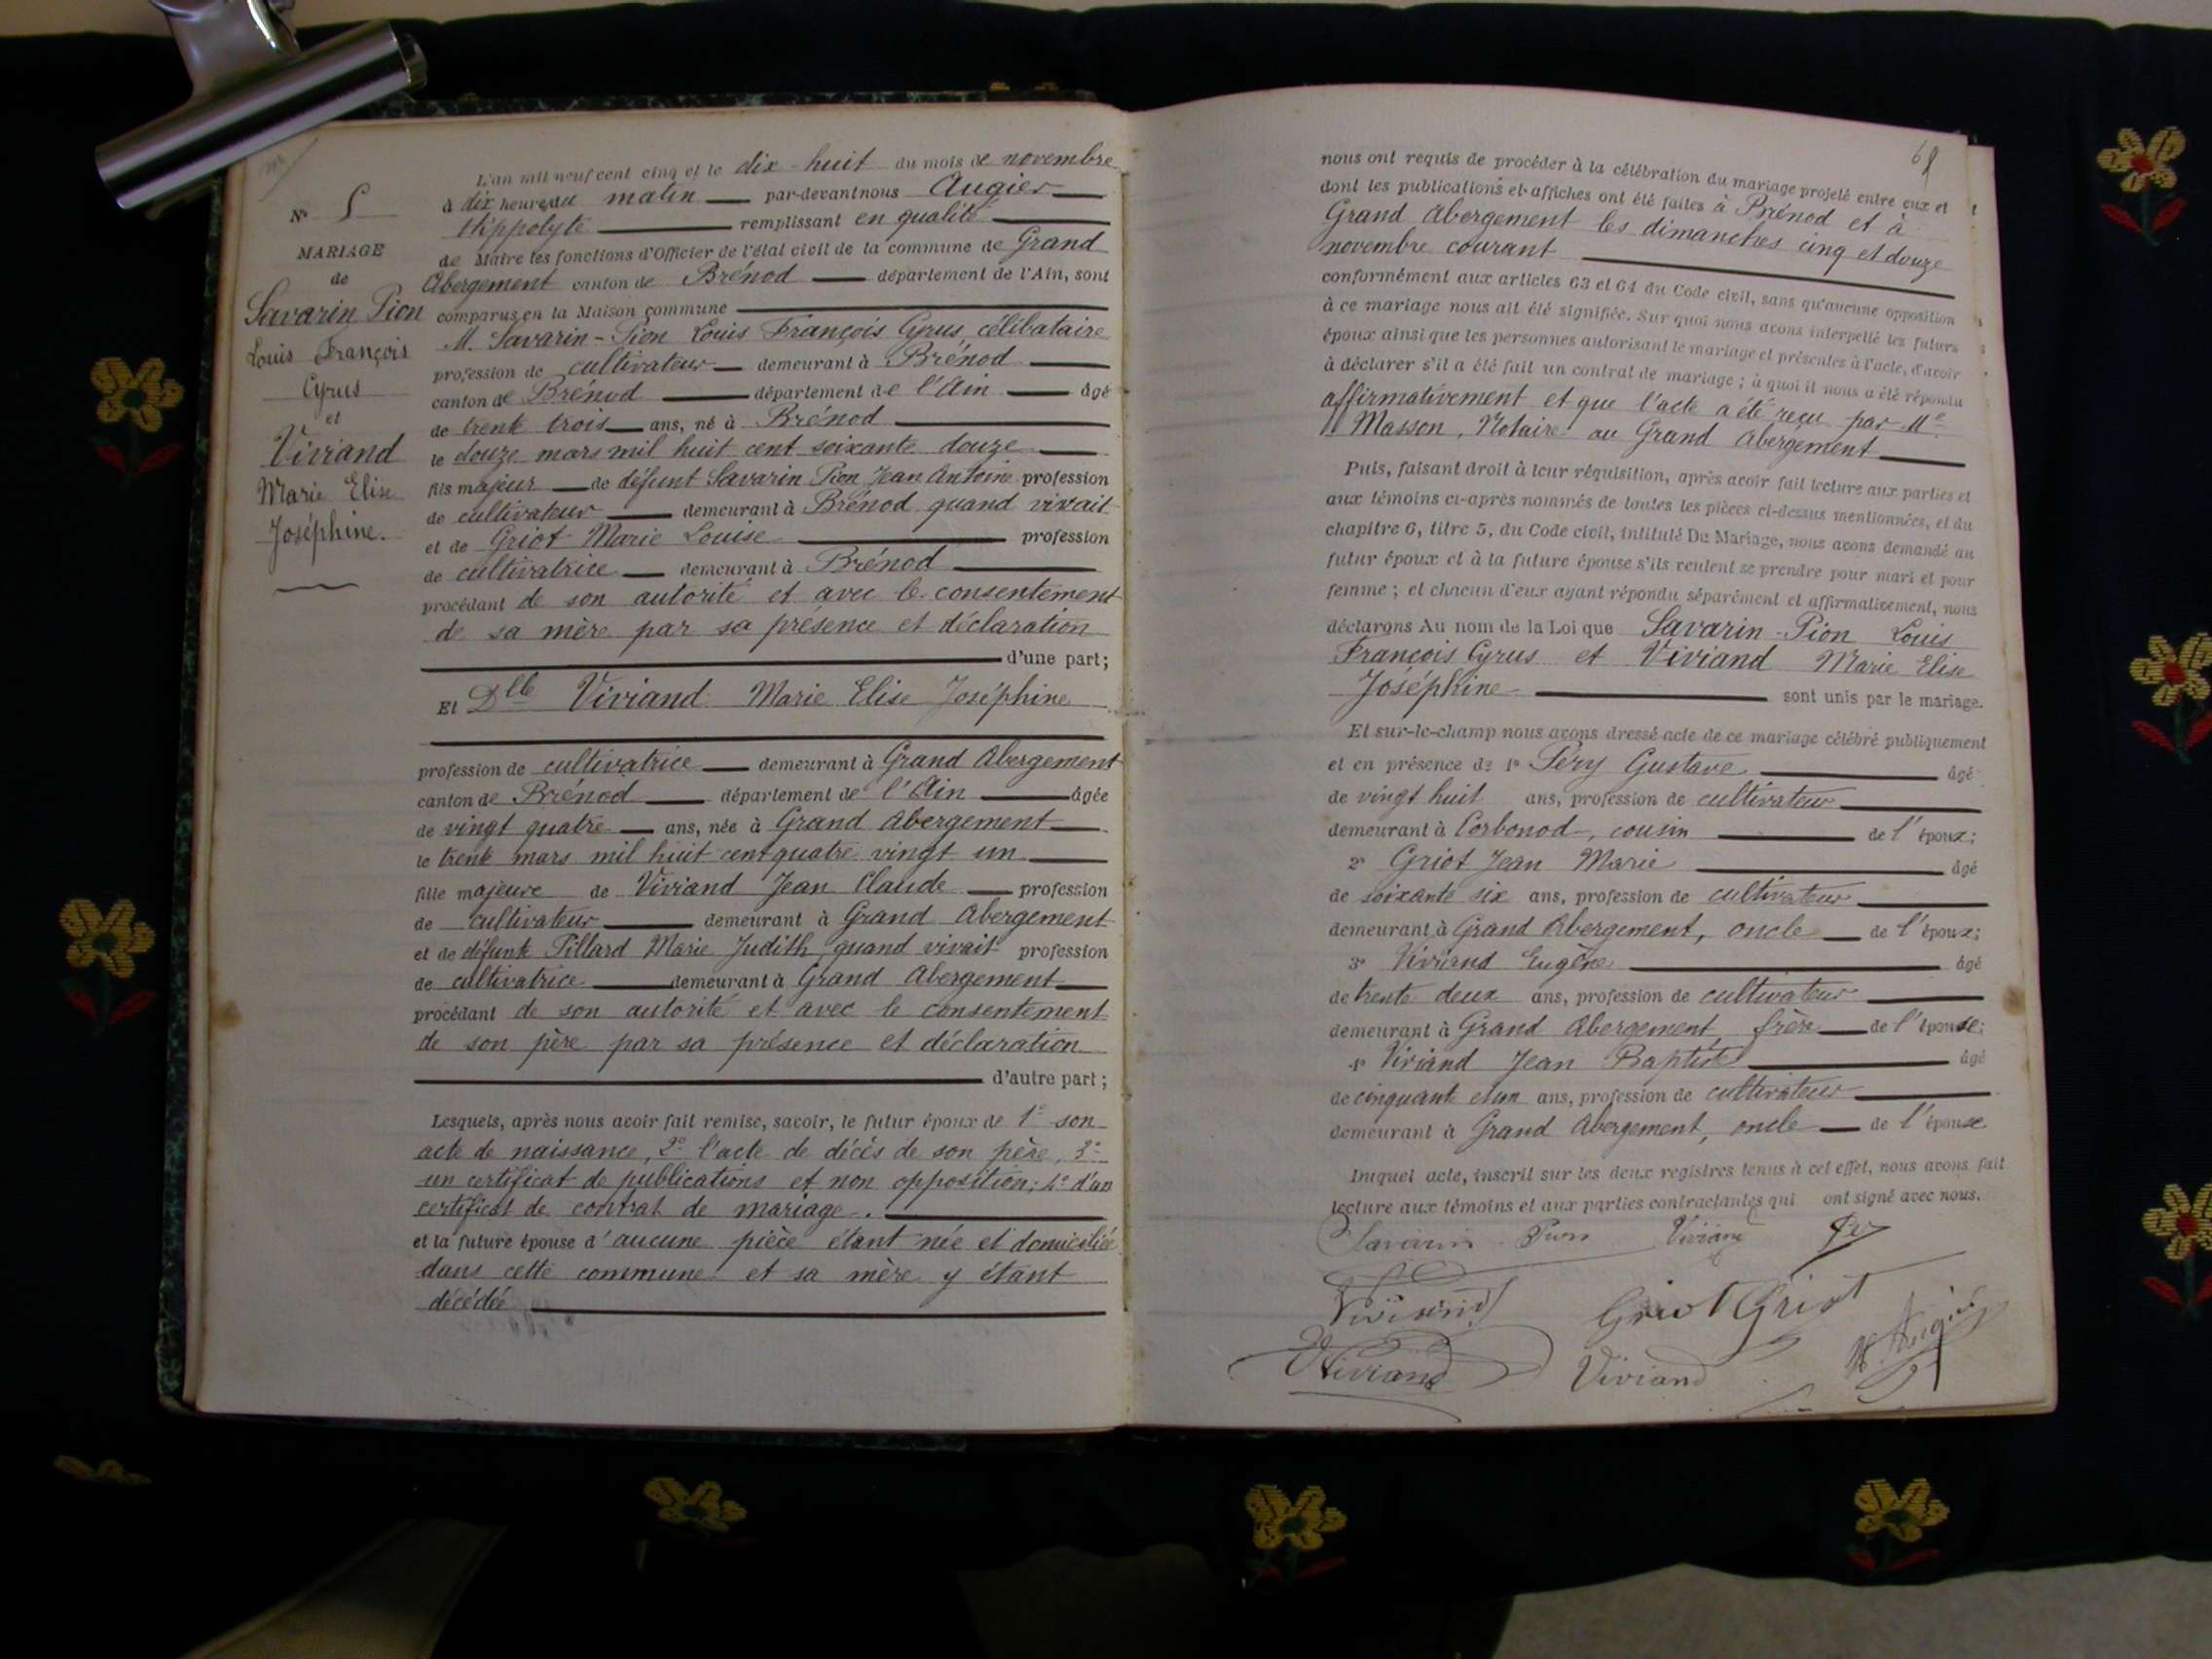 N° 5
MARIAGE
de
Savarin Pion
Louis François
Cyrus
et
Viviand
Marie Elise
Joséphine.
L'an mil neuf cent cinq et le dix-huit du mois de novembre
à dix heures du matin par-devant nous Augier
Hippolyte remplissant en qualité
de Maire les fonctions d'Officier de l'état civil de la commune de Grand
Abergement canton de Brénod département de l'Ain, sont
comparus en la Maison commune
M. Savarin-Pion Louis François Cyrus, célibataire
profession de cultivateur demeurant à Brénod
canton de Brénod département de l'Ain âgé
de trente trois ans, né à Brénod
le douze mars mil huit cent soixante douze
fils majeur de défunt Savarin Pion Jean Antoine profession
de cultivateur demeurant à Brénod quand vivait
et de Griot Marie Louise profession
de cultivatrice demeurant à Brénod
procédant de son autorité et avec le consentement
de sa mère par sa présence et déclaration
d'une part;
Et Dlle Viviand Marie Elise Joséphine
profession de cultivatrice demeurant à Grand Abergement
canton de Brénod département de l'Ain âgée
de vingt quatre ans, née à Grand Abergement
le trente mars mil huit cent quatre vingt un
fille majeure de Viviand Jean Claude profession
de cultivateur demeurant à Grand Abergement
et de défunte Pillard Marie Judith, quand vivait profession
de cultivatrice demeurant à Grand Abergement
procédant de son autorité et avec le consentement
de son père par sa présence et déclaration
d'autre part;
Lesquels, après nous avoir fait remise, savoir, le futur époux de 1° son
acte de naissance, 2° l'acte de décès de son père, 3°
un certificat de publications et non opposition; 4° d'un
certificat de contrat de mariage.
et la future épouse d'aucune pièce étant née et domiciliée
dans cette commune et sa mère y étant
décédée
nous ont requis de procéder à la célébration du mariage projeté entre eux et
dont les publications et affiches ont été faites à Brénod et à
Grand Abergement les dimanches cinq et douze
novembre courant
conformément aux articles 63 et 64 du Code civil, sans qu'aucune opposition
à ce mariage nous ait été signifiée. Sur quoi nous avons interpellé les futurs
époux ainsi que les personnes autorisant le mariage et présentes à l'acte, d'avoir
à déclarer s'il a été fait un contrat de mariage; à quoi il nous a été répondu
affirmativement et que l'acte a été reçu par Me
Masson, Notaire au Grand Abergement
Puis, faisant droit à leur réquisition, après avoir fait lecture aux parties et
aux témoins ci-après nommés de toutes les pièces ci-dessus mentionnées, et du
chapitre 6, titre 5, du Code civil, intitulé Du Mariage, nous avons demandé au
futur époux et à la future épouse s'ils veulent se prendre pour mari et pour
femme; et chacun d'eux ayant répondu séparément et affirmativement, nous
déclarons Au nom de la Loi que Savarin-Pion Louis
François Cyrus et Viviand Marie Elise
Joséphine sont unis par le mariage.
Et sur-le-champ nous avons dressé acte de ce mariage célébré publiquement
et en présence de 1° Péry Gustave âgé
de vingt huit ans, profession de cultivateur
demeurant à Corbonod, cousin de l'époux;
2° Griot Jean Marie âgé
de soixante six ans, profession de cultivateur
demeurant à Grand Abergement, oncle de l'époux;
3° Viviand Eugène âgé
de trente deux ans, profession de cultivateur
demeurant à Grand Abergement, frère de l'épouse;
4° Viviand Jean Baptiste âgé
de cinquante et un ans, profession de cultivateur
demeurant à Grand Abergement, oncle de l'épouse.
Duquel acte, inscrit sur les deux registres tenus à cet effet, nous avons fait
lecture aux témoins et aux parties contractantes qui ont signé avec nous.
Savarin Pion Viviand
Viviand Griot Griot
Viviand Viviand H. Augier